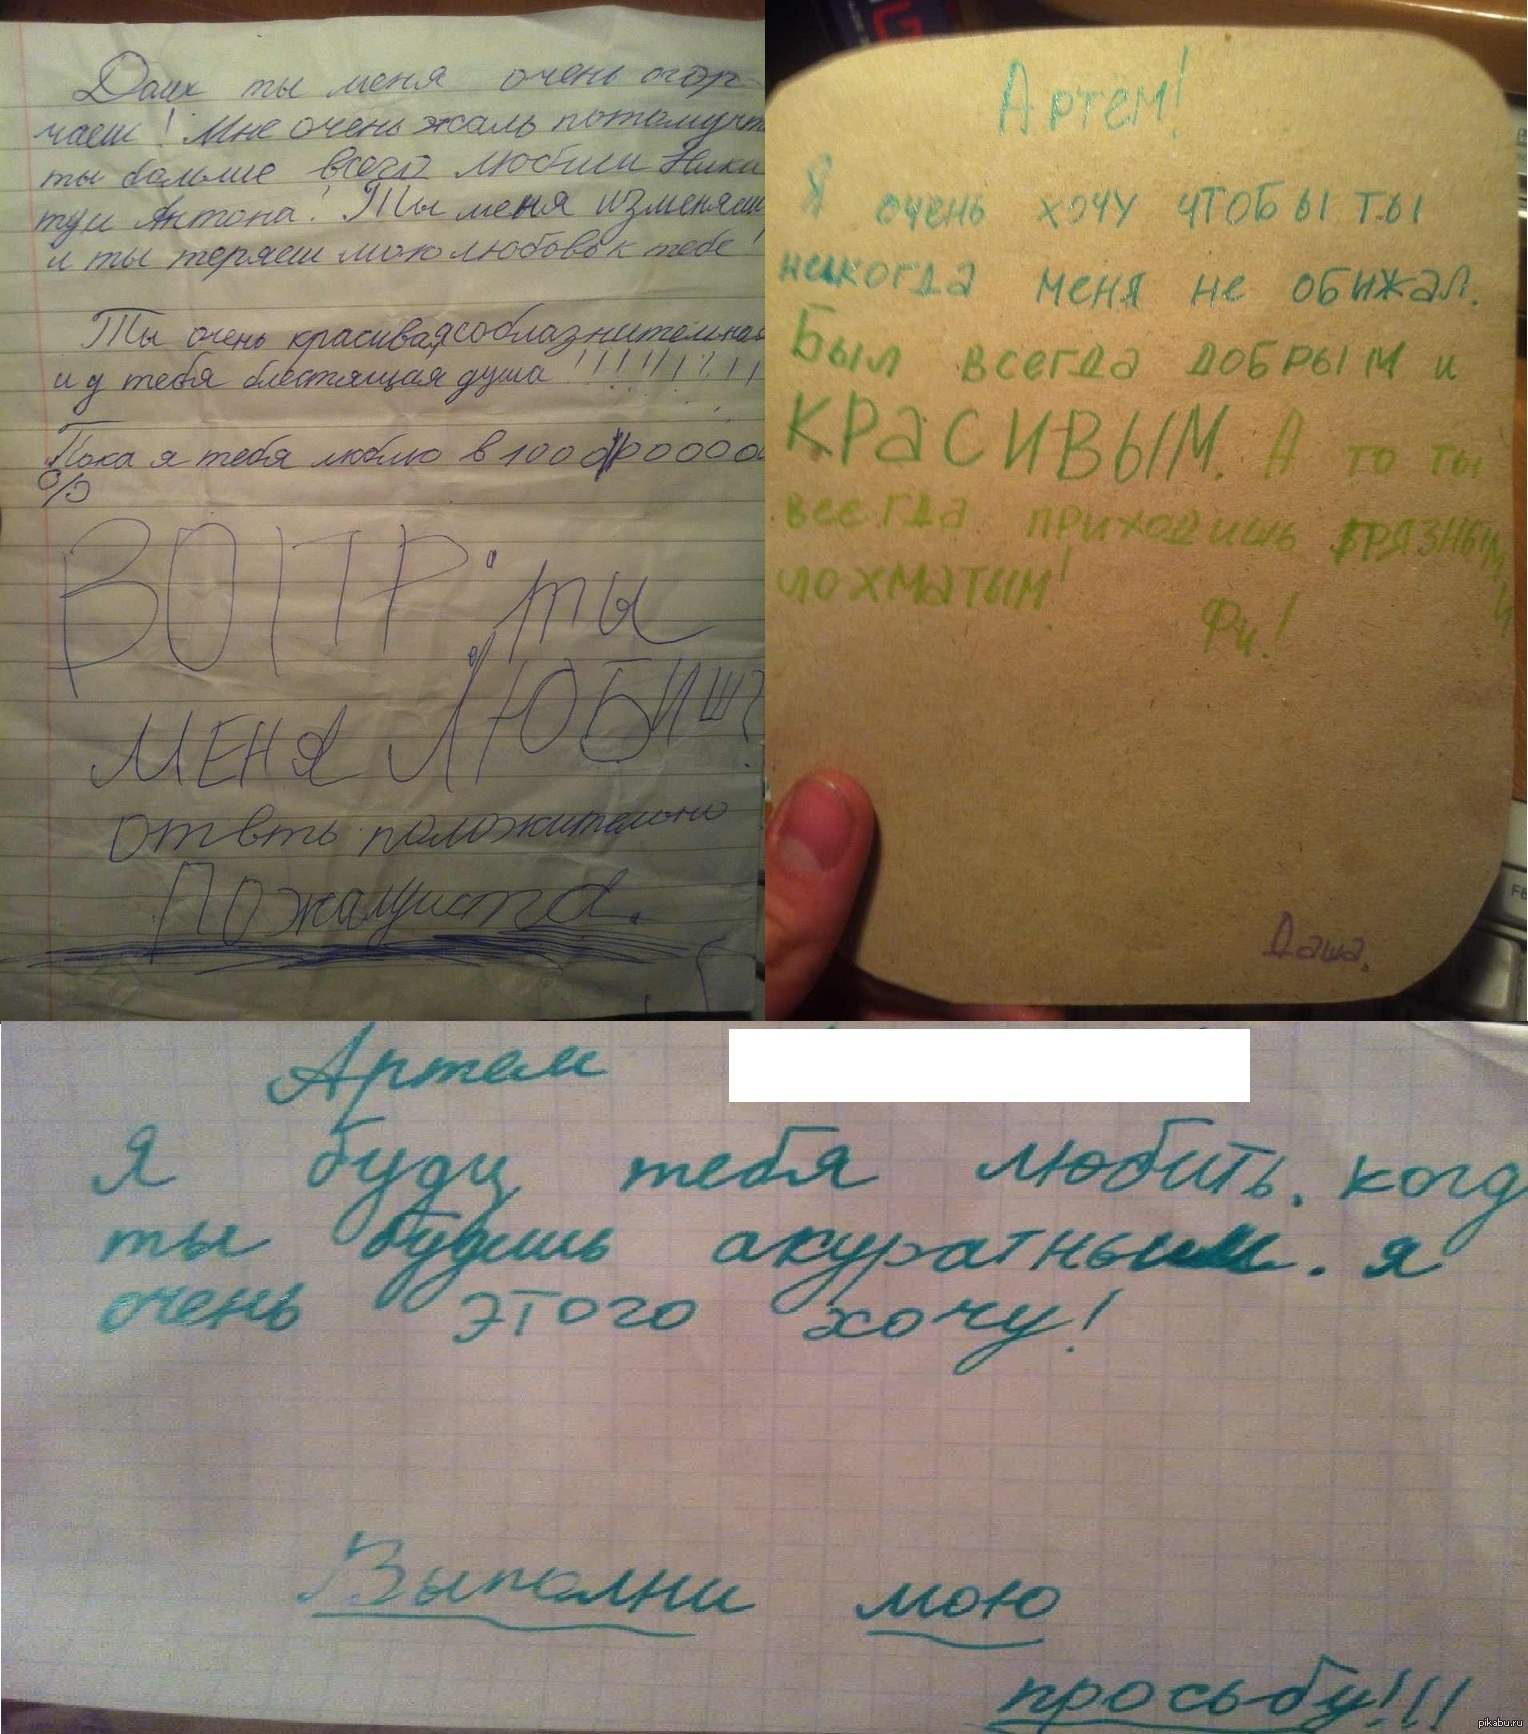 Даих ты меня очень огор-
чаеш! Мне очень жаль потомучт
ты больше всего любиш Ники
ту и Антона! Ты меня изменяеш
и ты теряеш мою любовь к тебе!
Ты очень красивая, соблазнительная
и у тебя блестящая душа!!!!!!!!!
Пока я тебя люблю в 1000
%
ВОПР: ты
МЕНЯ ЛЮБИШ?
отвть положительно
Пожалуиста.
Артём!
Я очень хочу чтобы ты
никогда меня не обижал.
Был всегда добрым и
КРАСИВЫМ. А то ты
всегда приходишь грязным и
лохматым!
Фи!
Даша.
Артем
Я буду тебя любить. когд
ты будишь акуратным. я
очень этого хочу!
Выполни мою
просьбу!!!
pikabu.ru